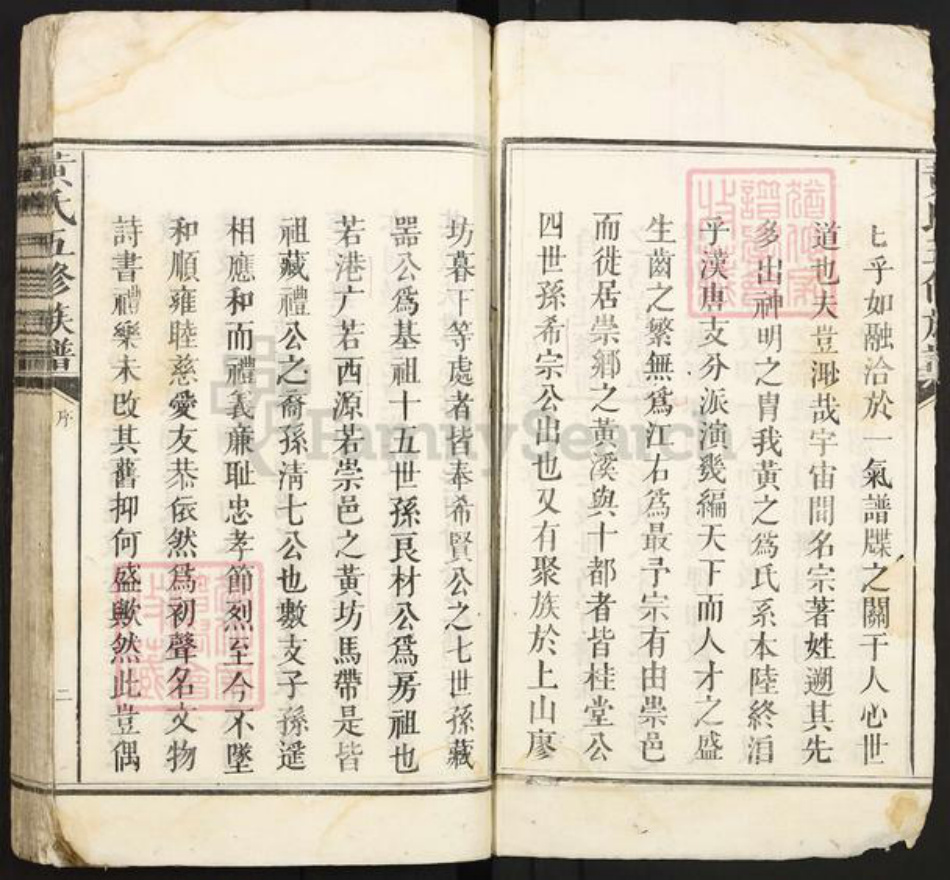 乎如融洽於一氣譜牒之關于人心世
道也夫豈淺哉宇宙間名宗著姓遡其先
多出神明之胄我黃之爲氏系本陸終洎
乎漢唐支分派演幾編天下而人才之盛
生齒之繁無爲江右爲最予宗有由崇邑
而徙居崇鄉之黃溪與十都者皆桂堂公
四世孫希宗公出也又有聚族於上山廖
坊暮下等處者皆奉希賢公之七世孫藏
器公爲基祖十五世孫良材公爲房祖也
若港广若西源若崇邑之黃坊馬帶是皆
祖藏禮公之裔孫清七公也數支子孫遥
相應和而禮義廉耻忠孝節烈至今不墜
和順雍睦慈愛友恭依然爲初聲名文物
詩書禮樂未改其舊抑何盛歟然此豈偶
黃氏五修族譜
序
二
FamilySearch